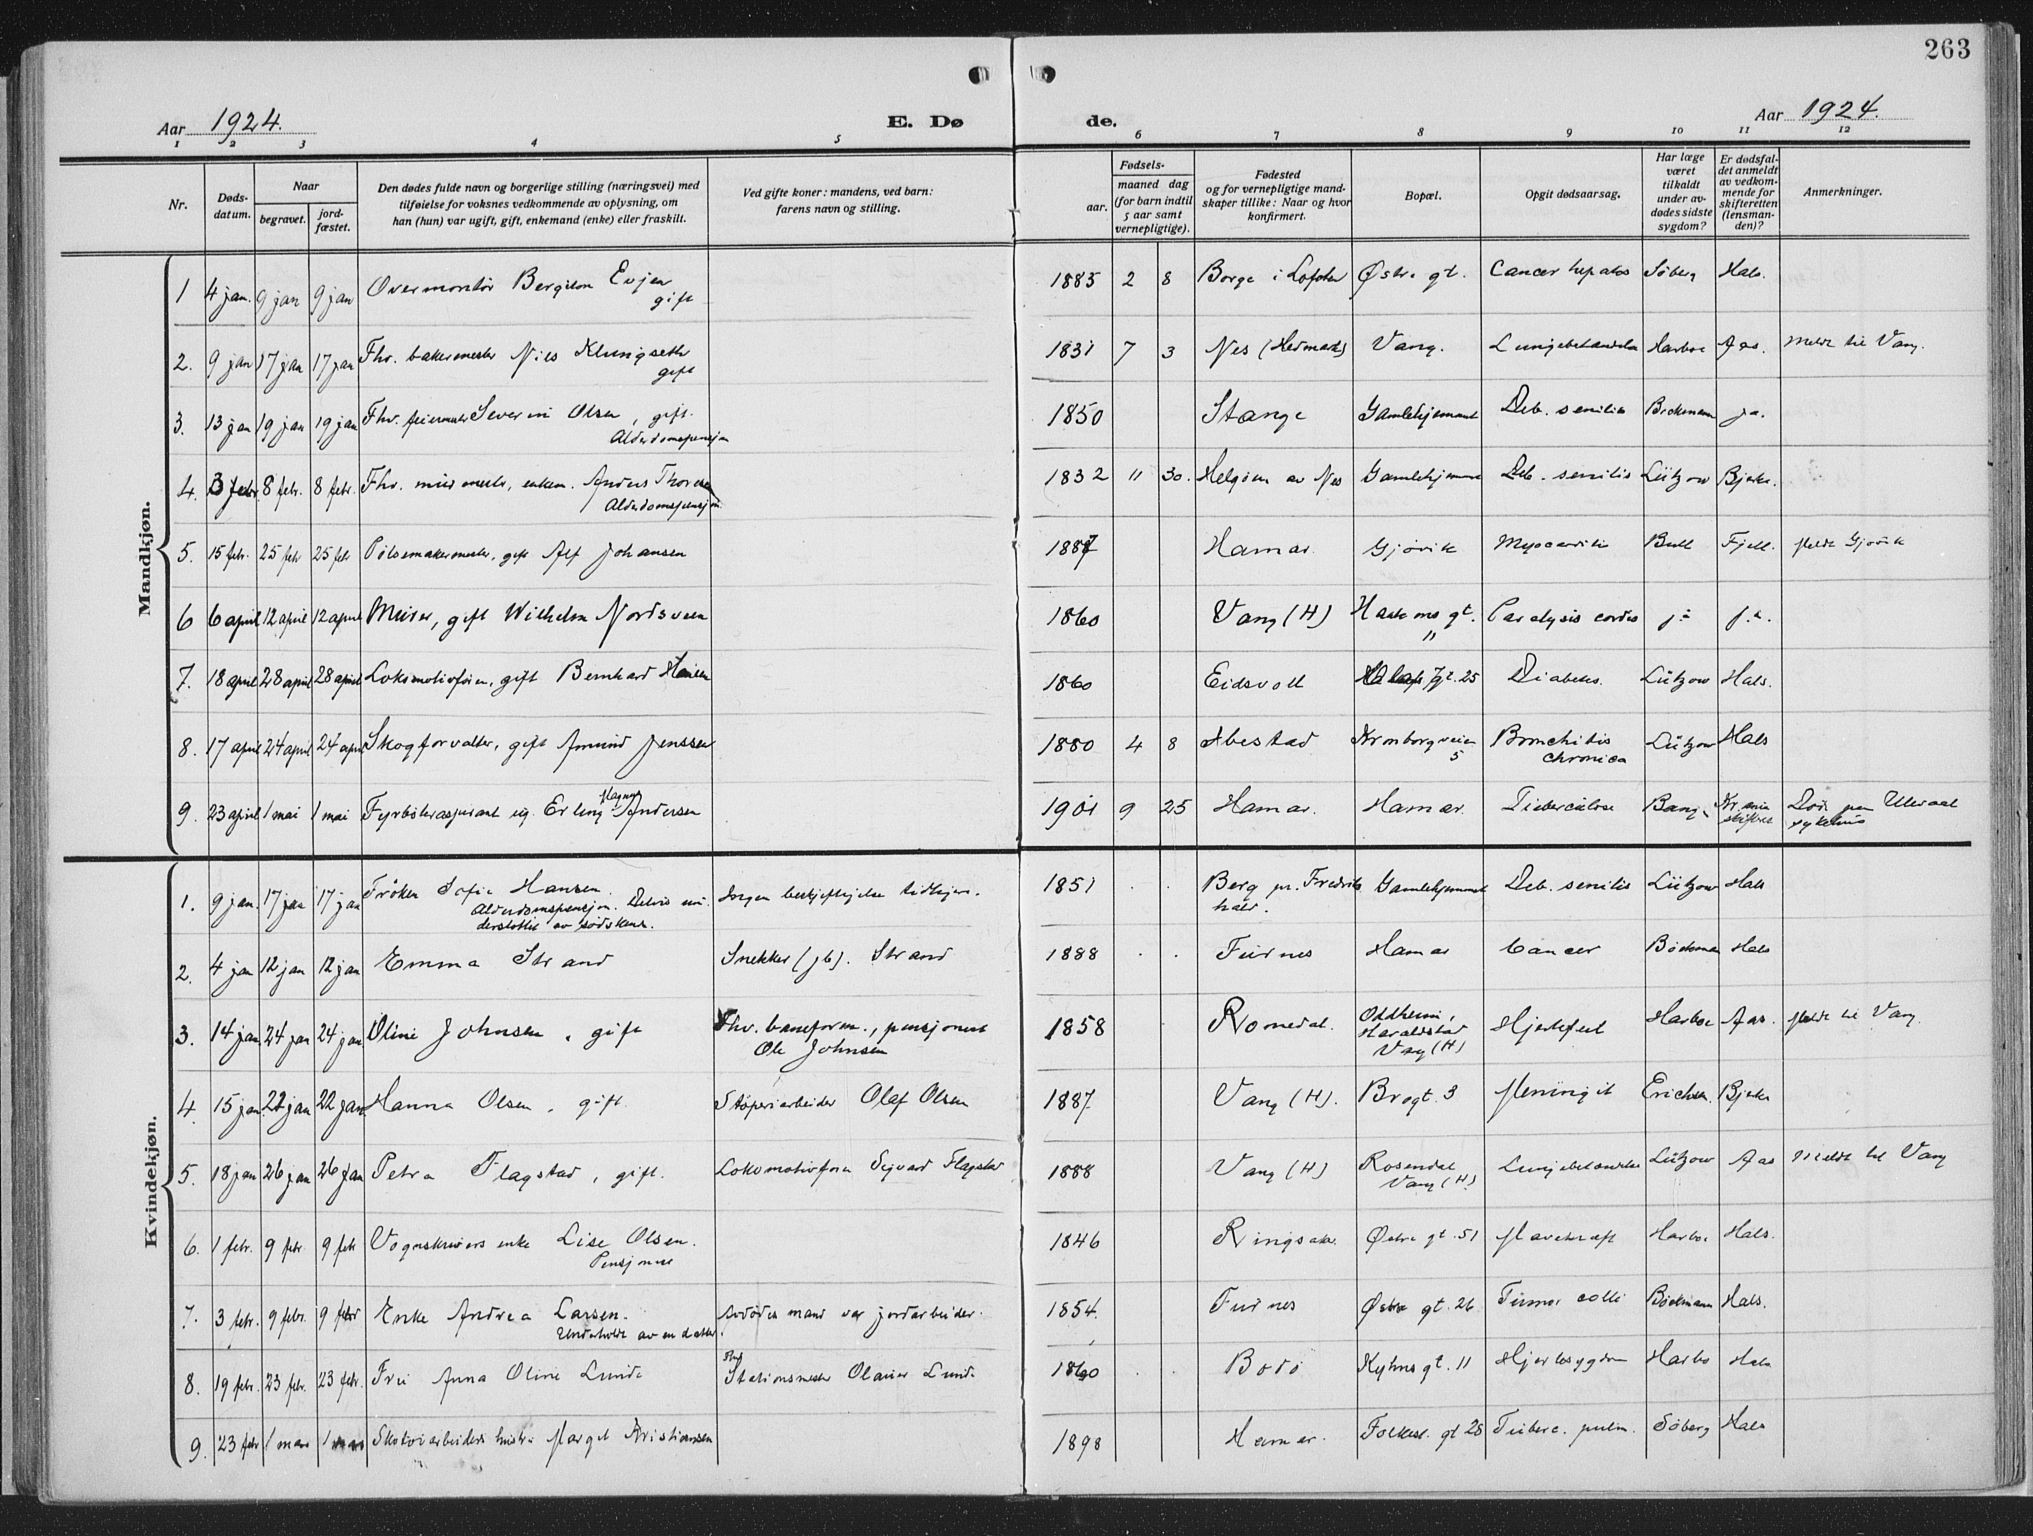 263
Aar 1924.
E. Dø
de.
Aar 1924.
1 2 3 4 5 6 7 8 9 10 11 12
Nr.
Døds-
datum.
Naar
begravet.
jord-
fæstet.
Den dødes fulde navn og borgerlige stilling (næringsvei) med
tilføielse for voksnes vedkommende av oplysning, om
han (hun) var ugift, gift, enkemand (enke) eller fraskilt.
Ved gifte koner: mandens, ved barn:
farens navn og stilling.
Fødsels-
aar.
maaned dag
(for barn indtil
5 aar samt
vernepligtige).
Fødested
og for vernepligtige mand-
skaper tillike: Naar og hvor
konfirmert.
Bopæl.
Opgit dødsaarsag.
Har læge
været
tilkaldt
under av-
dødes sidste
sygdom?
Er dødsfal-
det anmeldt
av vedkom-
mende for
skifteretten
(lensman-
den)?
Anmerkninger.
Mandkjøn.
1 4 jan. 9 jan 9 jan Overmontör Evjen 1885 2 8 Borge i Lofoten Østre gt. Cancer hepatis Søberg Hals.
gift
2. 9 jan 17 jan 17 jan Fhv. bakermester Nils Klungseth 1831 7 3 Nes (Hedmark) Vang. Lungebetændelse Harboe Aas. Meldt til Vang.
gift
3. 13 jan 19 jan 19 jan Fhv. feiermester Severin Olsen, gift. 1850 Stange Gamlehjemmet Deb. senilis Bockmann ja.
Alderdomspensjon
4. 3 febr 8 febr. 8 febr. Fhv. murmester, enkem. Anders Thoresen 1832 11 30. Helgøen av Nes Gamlehjemmet Deb. senilis Lützow Bjerke.
Alderdomspensjon
5. 15 febr. 25 febr 25 febr Pölsemakermester, gift Alf Johansen 1887 Hamar. Gjövik Myocarditis Bull Fjell. Meldt Gjövik
6 6 april 12 april 12 april Murer, gift Wilhelm Nordsveen 1860 Vang (H) Haakons gt. 11 Paralysis cordis ja ja.
7. 18 april 28 april 28 april Lokomotivfører, gift Bernhard Hansen 1860 Eidsvoll gt. 25 Diabetes. Lützow Hals.
8. 17 april 24 april 24 april Skogforvalter, gift Amund Jenssen 1880 4 8 Ibestad Kronborgveien Bronchitis Lützow Hals
5 chronica
9. 23 april 1 mai 1 mai Fyrbøteraspirant ug. Erling Magnus Andersen 1901 9 25 Hamar. Hamar. Tuberculose Bang Kr.ania Död paa Ullevaal
skifteret sykehus
Kvindekjøn.
1. 9 jan. 17 jan 17 jan Fröken Sofie Hansen. Ingen beskjeftigelse tidligere. 1851 Berg pr. Fredriks Gamlehjemmet Deb. senilis Lützow Hals
Alderdomspensjon. Delvis un- hald.
derstöttet av södsken.
2. 4 jan 12 jan 12 jan Emma Strand Snekker (jb). Strand 1888 Furnes Hamar Cancer Böckman Hals
3. 14 jan 24 jan 24 jan Oline Johnsen, gift Fhv. baneform., pensjonert 1858 Romedal. Oddheim, Hjertefeil Harboe Aas. Meldt til Vang.
Ole Johnsen Haraldstad
Vang (H)
4. 15 jan. 22 jan 22 jan Hanna Olsen, gift. Stöperiarbeider Olaf Olsen 1887 Vang (H). Brogt. 3 Meningit Erichsen. Bjerke
5. 18 jan 26 jan 26 jan Petra Flagstad, gift. Lokomotivfører Sigvard Flagstad 1888 Vang (H) Rosendal Lungebetændelse Lützow Aas Meldt til Vang
Vang (H)
6. 1 febr. 9 febr. 9 febr Vognskrivers enke Lise Olsen. 1846 Ringsaker. Østre gt. 51 Mavekræft Harboe Hals.
Pensjonist
7. 3 febr. 9 febr. 9 febr Enke Andrea Larsen. Avdödes mand var jordarbeider. 1854. Furnes Østre gt. 26 Tumor colli Böckmann Hals.
Underholdt av en datter.
8. 19 febr. 23 febr. 23 febr. Fru Anna Oline Lunde Fhv. Stationsmester Olaus Lunde 1860 Bodö Kyhns gt. 11 Hjertesygdom Harbo Hals
9. 23 febr 1 mars 1 mars Skotöiarbeiders hustru Margit Kristiansen 1898 Hamar. Folkest. gt 28 Tuberc. pulm. Söberg Hals